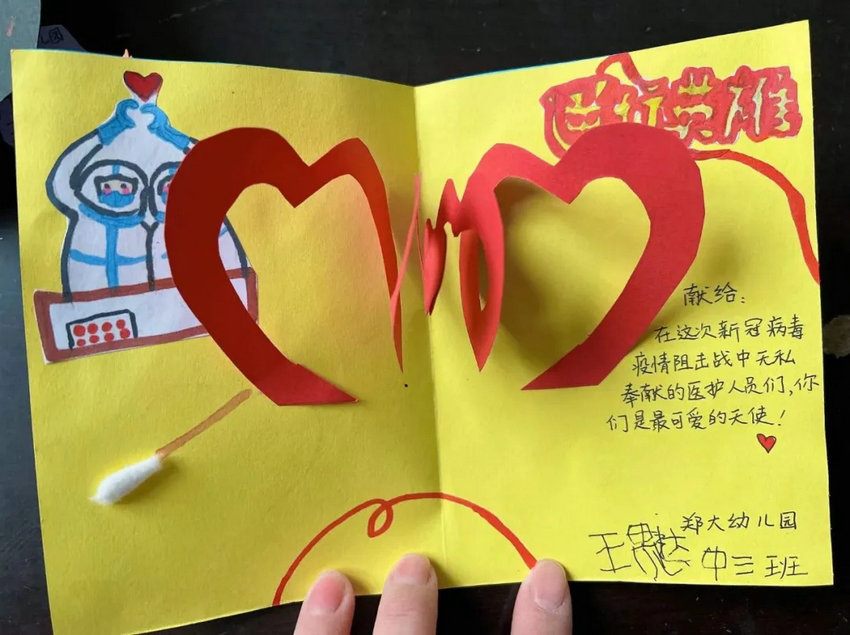 英雄
献给：
在这次新冠病毒
疫情阻击战中无私
奉献的医护人员们，你
们是最可爱的天使！
郑大幼儿园
王
中三班